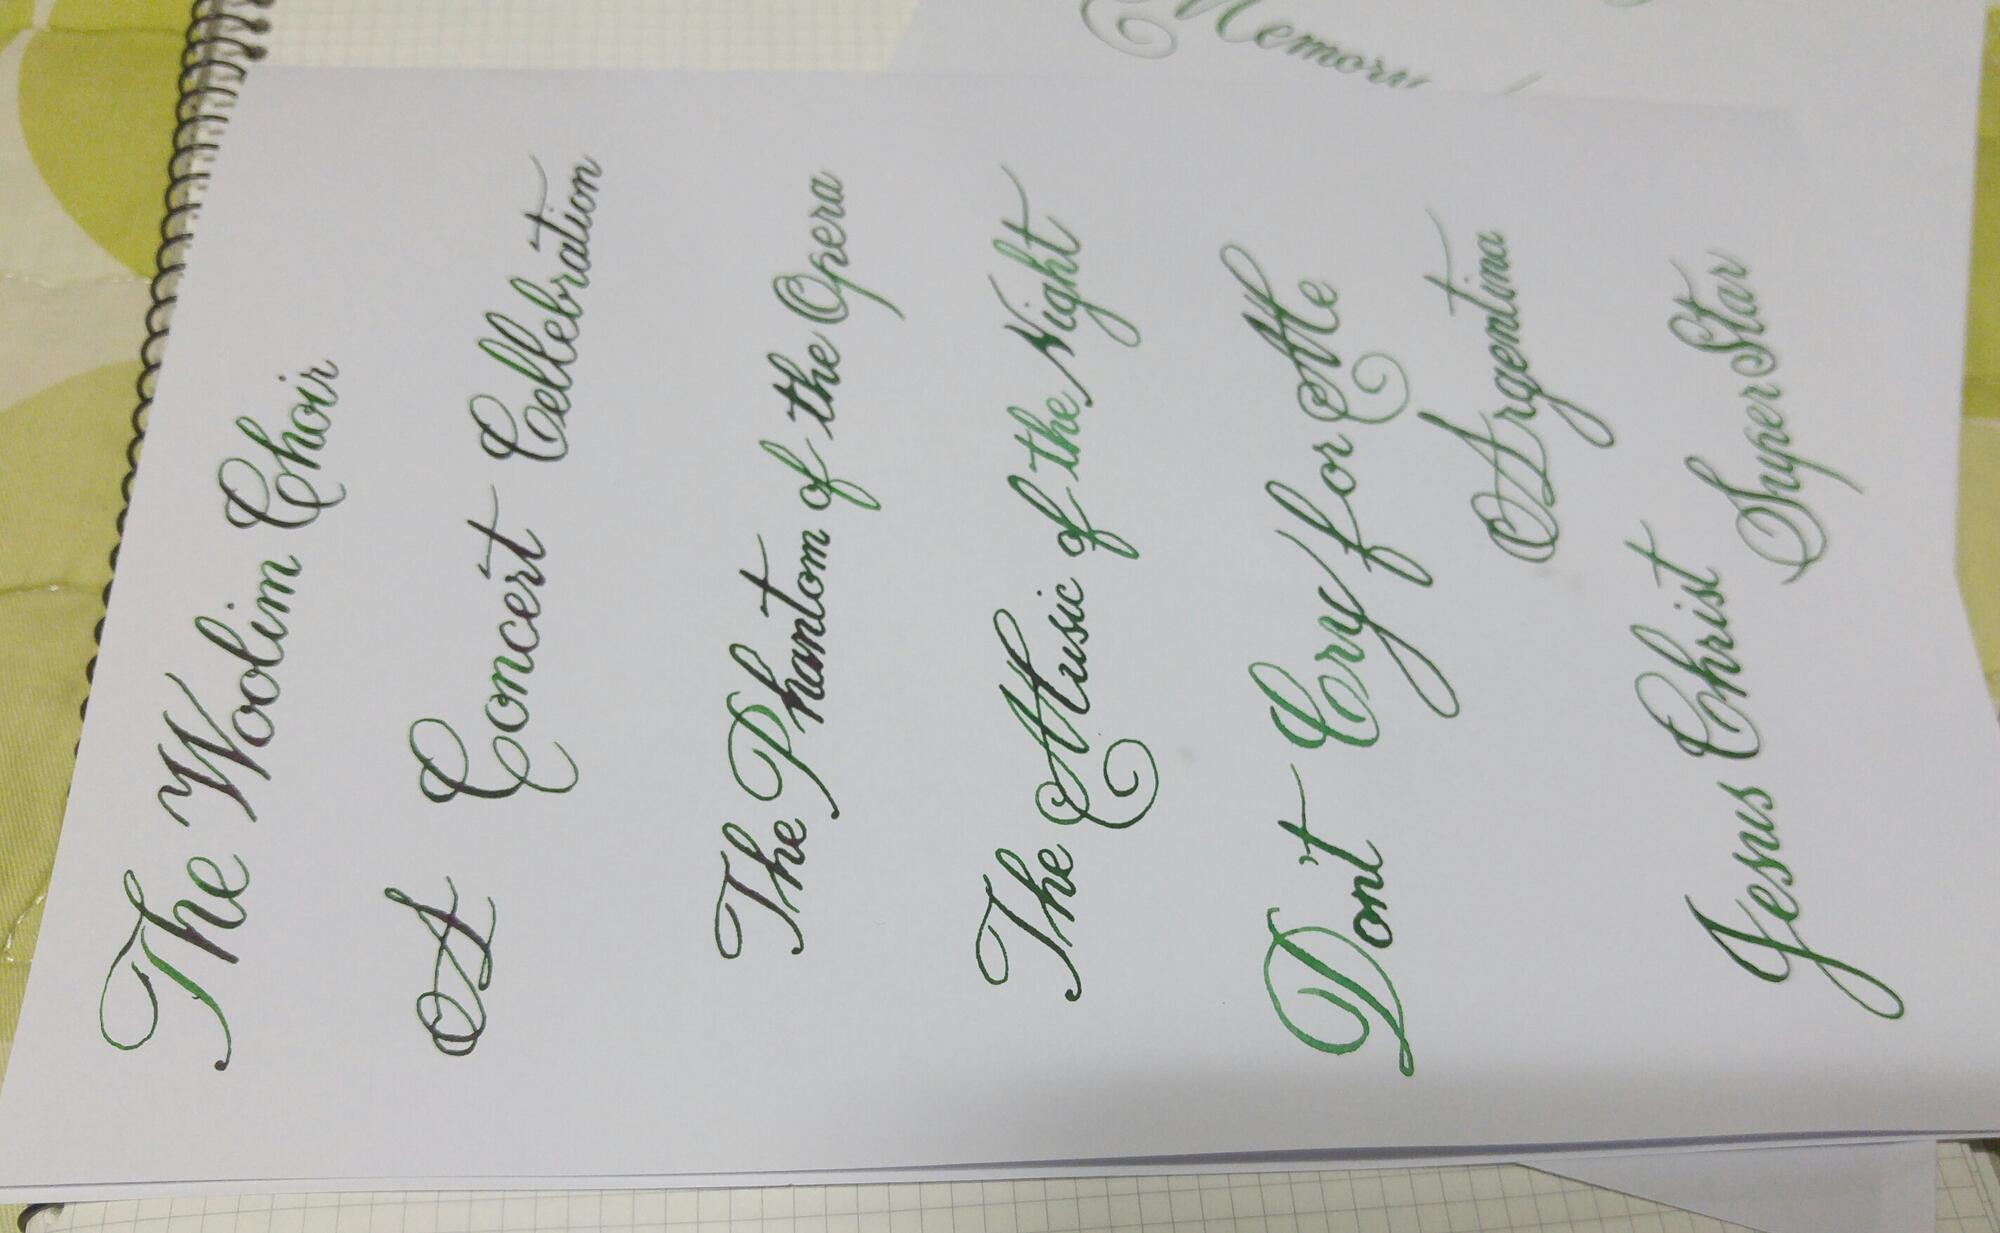 The Woolim Choir
A Concert Cellebration
The Phantom of the Opera
The Music of the Night
Don't Cry for Me
Argentina
Jesus Christ
Super Star
Memory